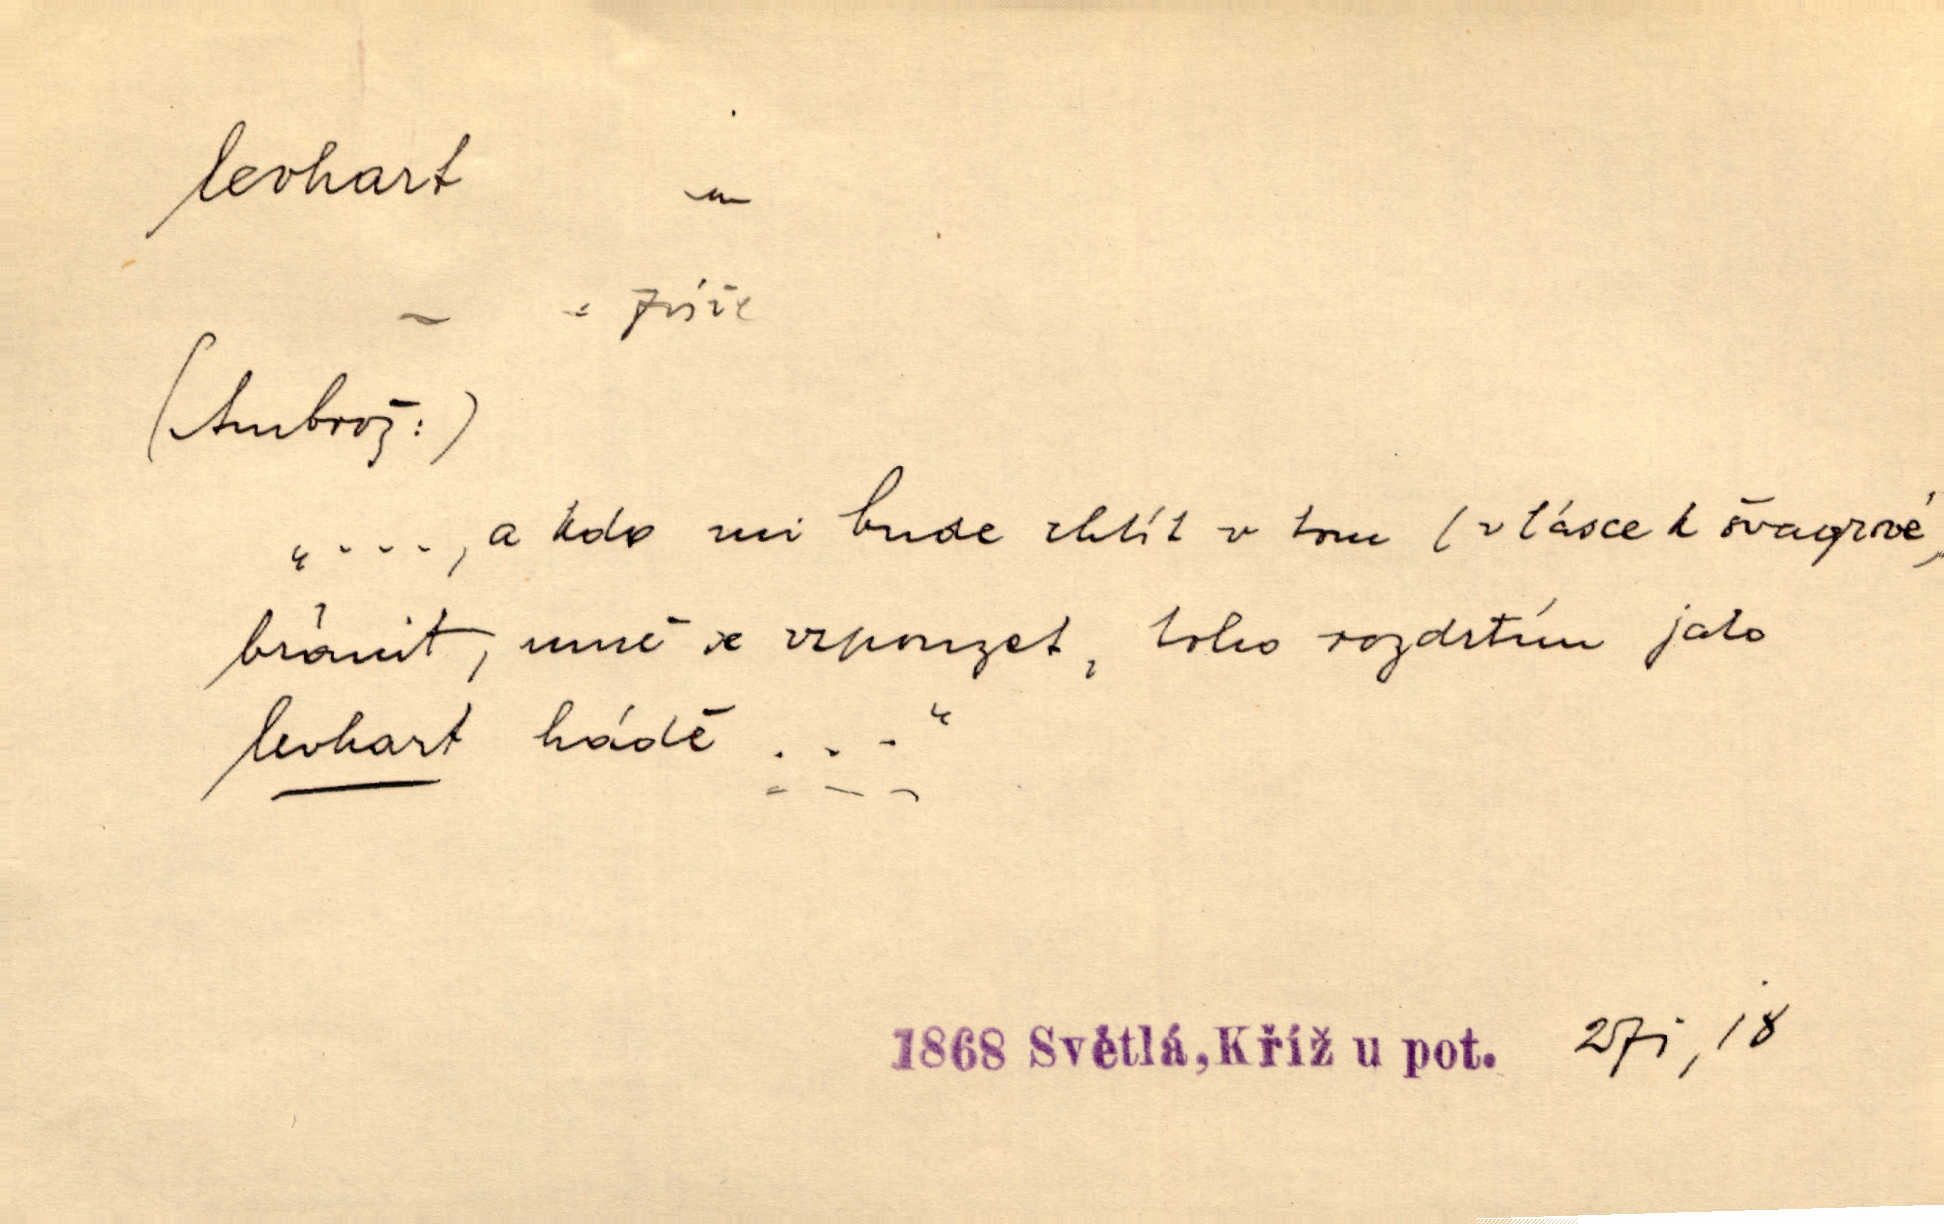 levhart m
= zvíře
(Ambrož:)
„...., a kdo mi bude chtít v tom (v lásce k švagrové)
bránit, mně se vzpouzet, toho rozdrtím jako
levhart hádě ..."
1868 Světlá, Kříž u pot. 18